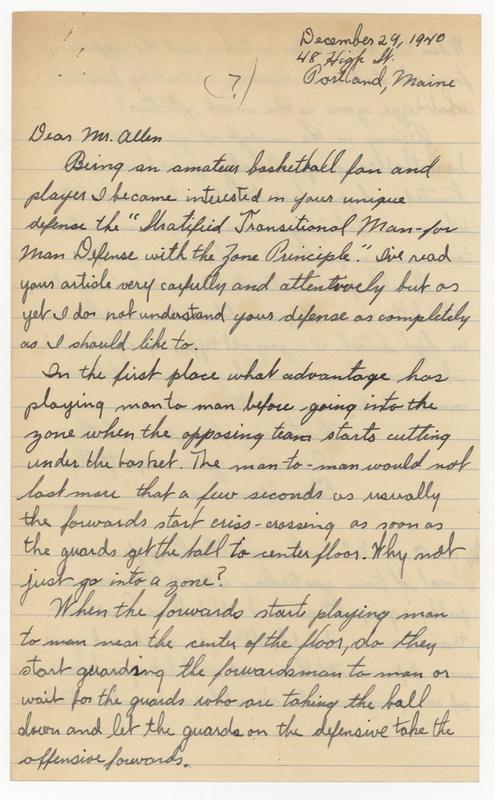 December 29, 1940
48 High St.
Portland, Maine
(?)
Dear Mr. Allen
Being an amateur basketball fan and
player I became interested in your unique
defense the "Stratified Transitional Man-for
Man Defense with the Zone Principle." I've read
your article very carfully and attentively but as
yet I do not understand your defense as completely
as I should like to.
In the first place what advantage has
playing man to man before going into the
zone when the opposing team starts cutting
under the basket. The man-to-man would not
last more that a few seconds as usually
the forwards start criss-crossing as soon as
the guards get the ball to center floor. Why not
just go into a zone?
When the forwards start playing man
to man near the center of the floor, do they
start guarding the forwards man to man or
wait for the guards who are taking the ball
down and let the guards on the defensive take the
offensive forwards.